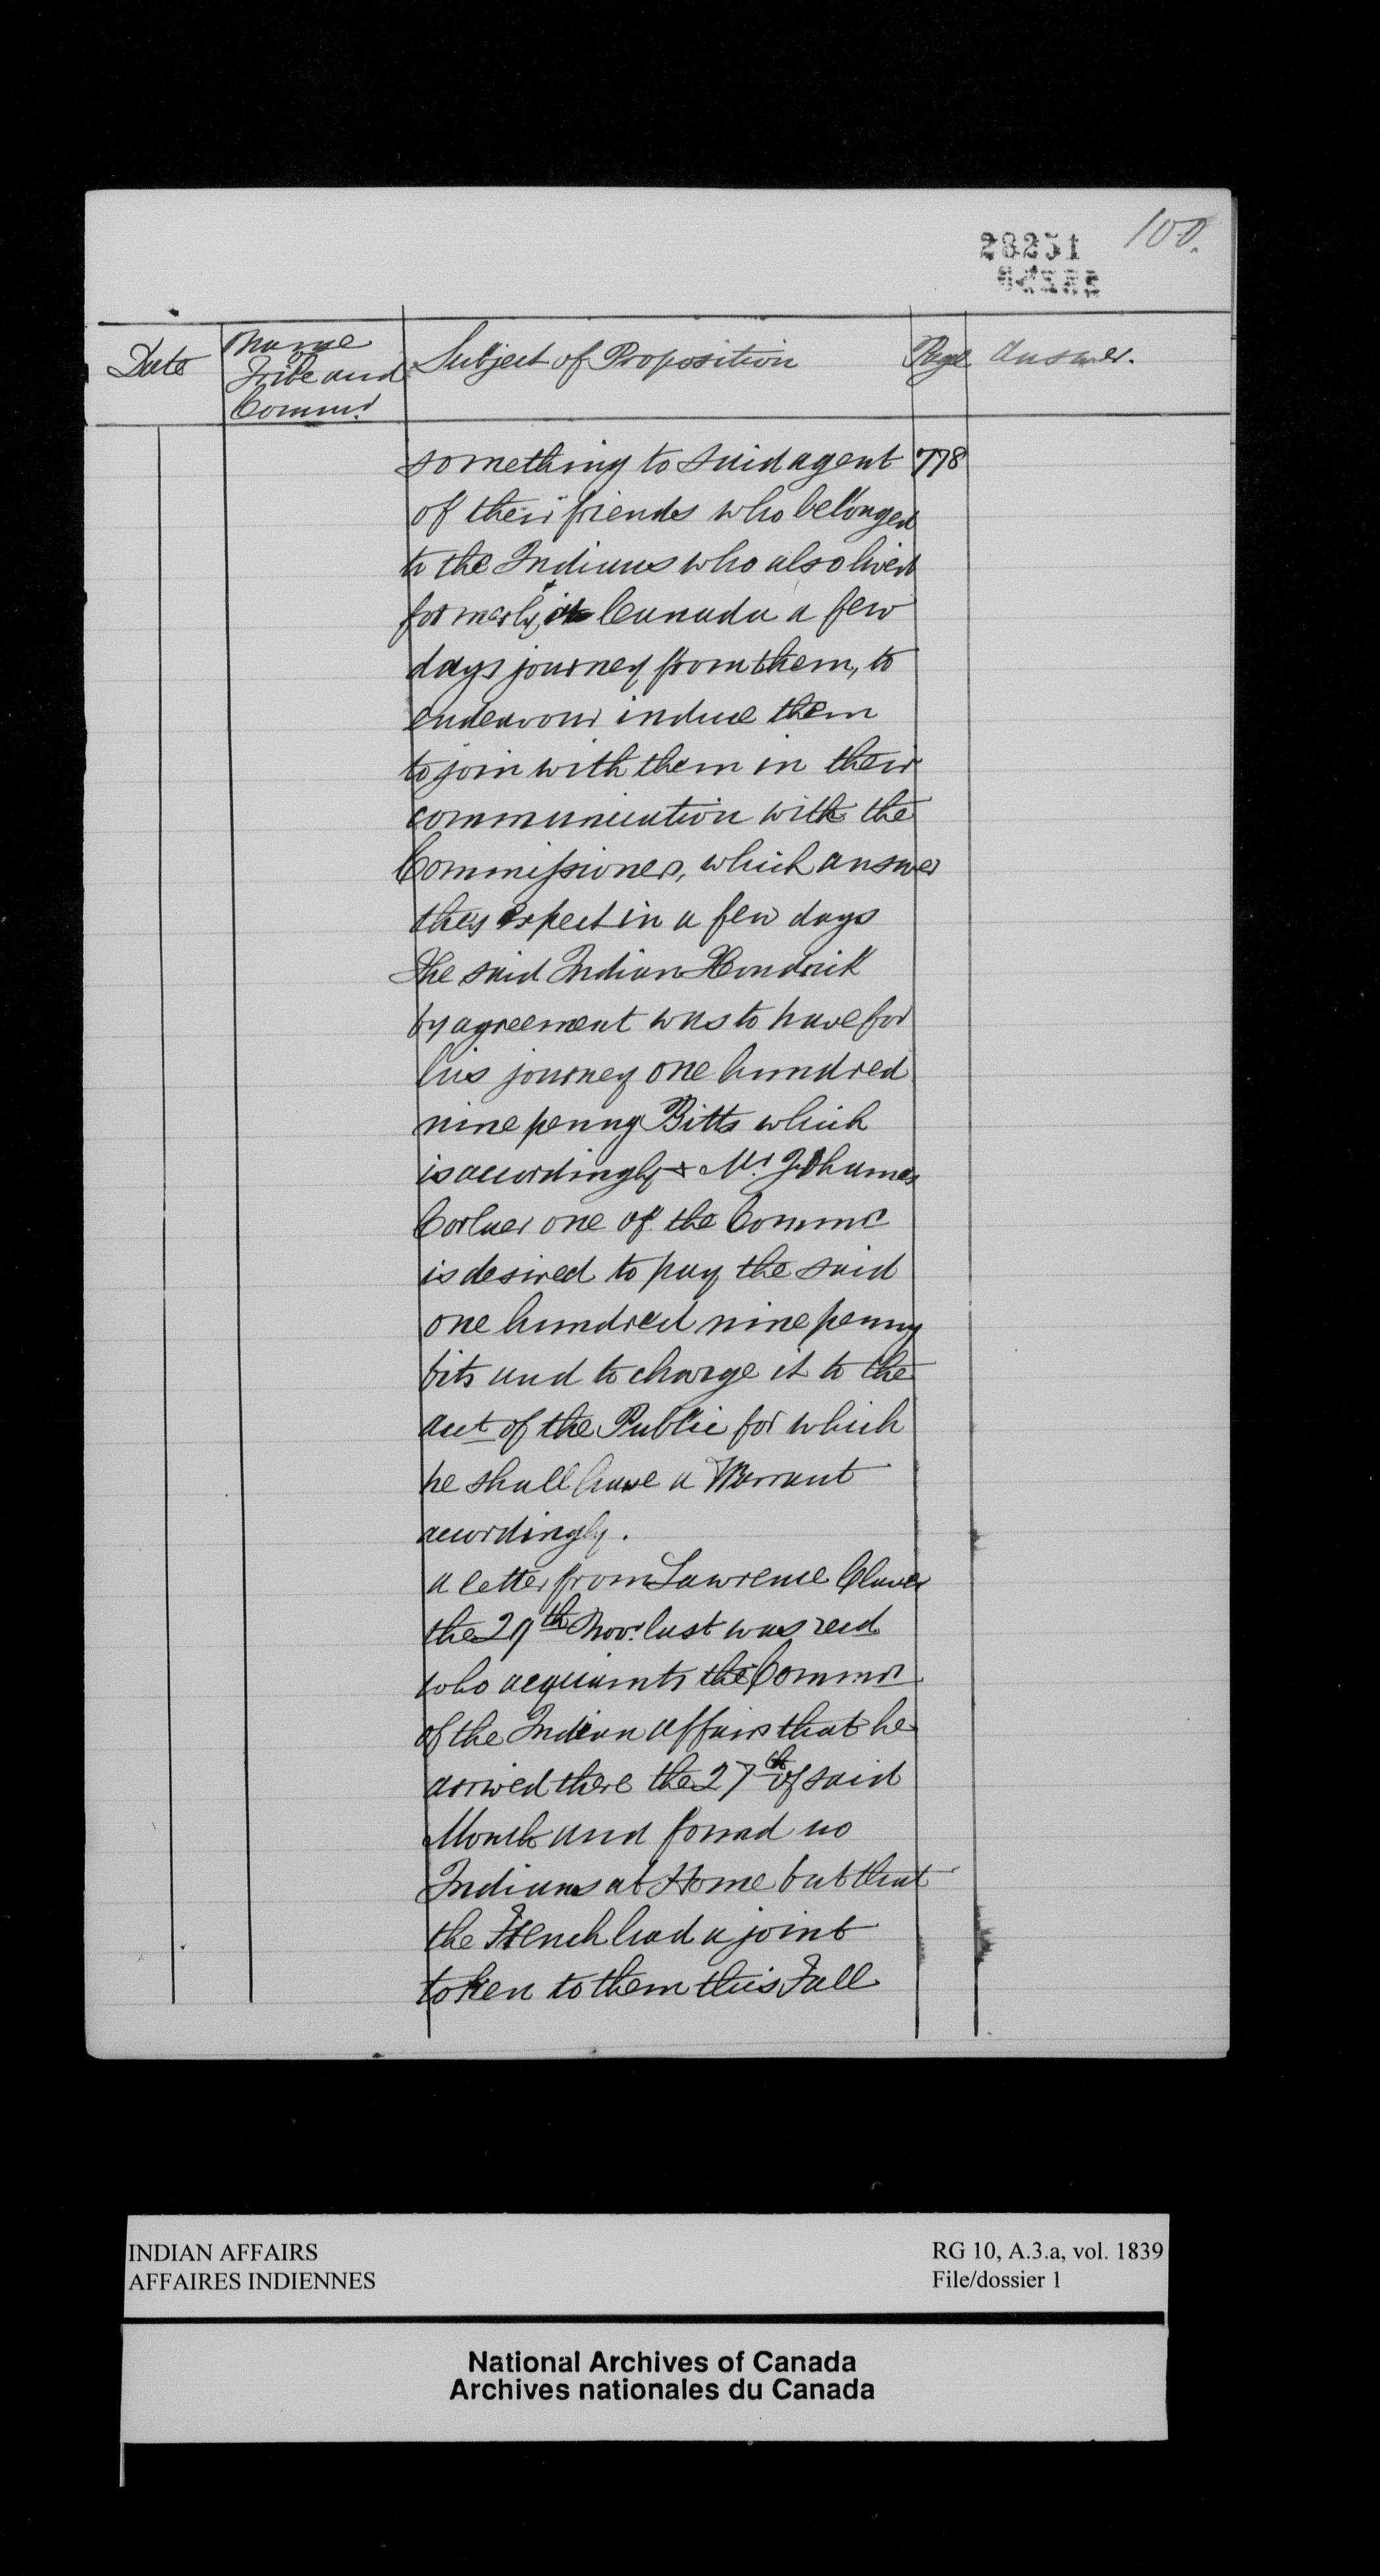 28251
100.
Date
Name
of
Tribe and
Commrs
Subject of Proposition
Page
Answer.
something to said agent 778
of their friends who belonged
to the Indians who also lived
formerly in Canada a few
days journey from them, to
endeavour induce them
to join with them in their
communication with the
Commissioners, which answer
they expect in a few days
The said Indian Hendrick
by agreement was to have for
his journey one hundred
nine penny Bitts which
is accordingly & Mr. Johannes
one of the Comms
is desired to pay the said
one hundred nine penny
bits and to charge it to the
acct of the Public for which
he shall have a Warrant
acordingly.
a letter from Lawrence Claver
the 29th Novr. last was red
who acquaints the Commrs
of the Indian affairs that he
arrived there the 27th of said
Month and found no
Indians at Home but that
the French had a joint
token to them this Fall
INDIAN AFFAIRS
AFFAIRES INDIENNES
RG 10, A.3.a, vol. 1839
File/dossier 1
National Archives of Canada
Archives nationales du Canada